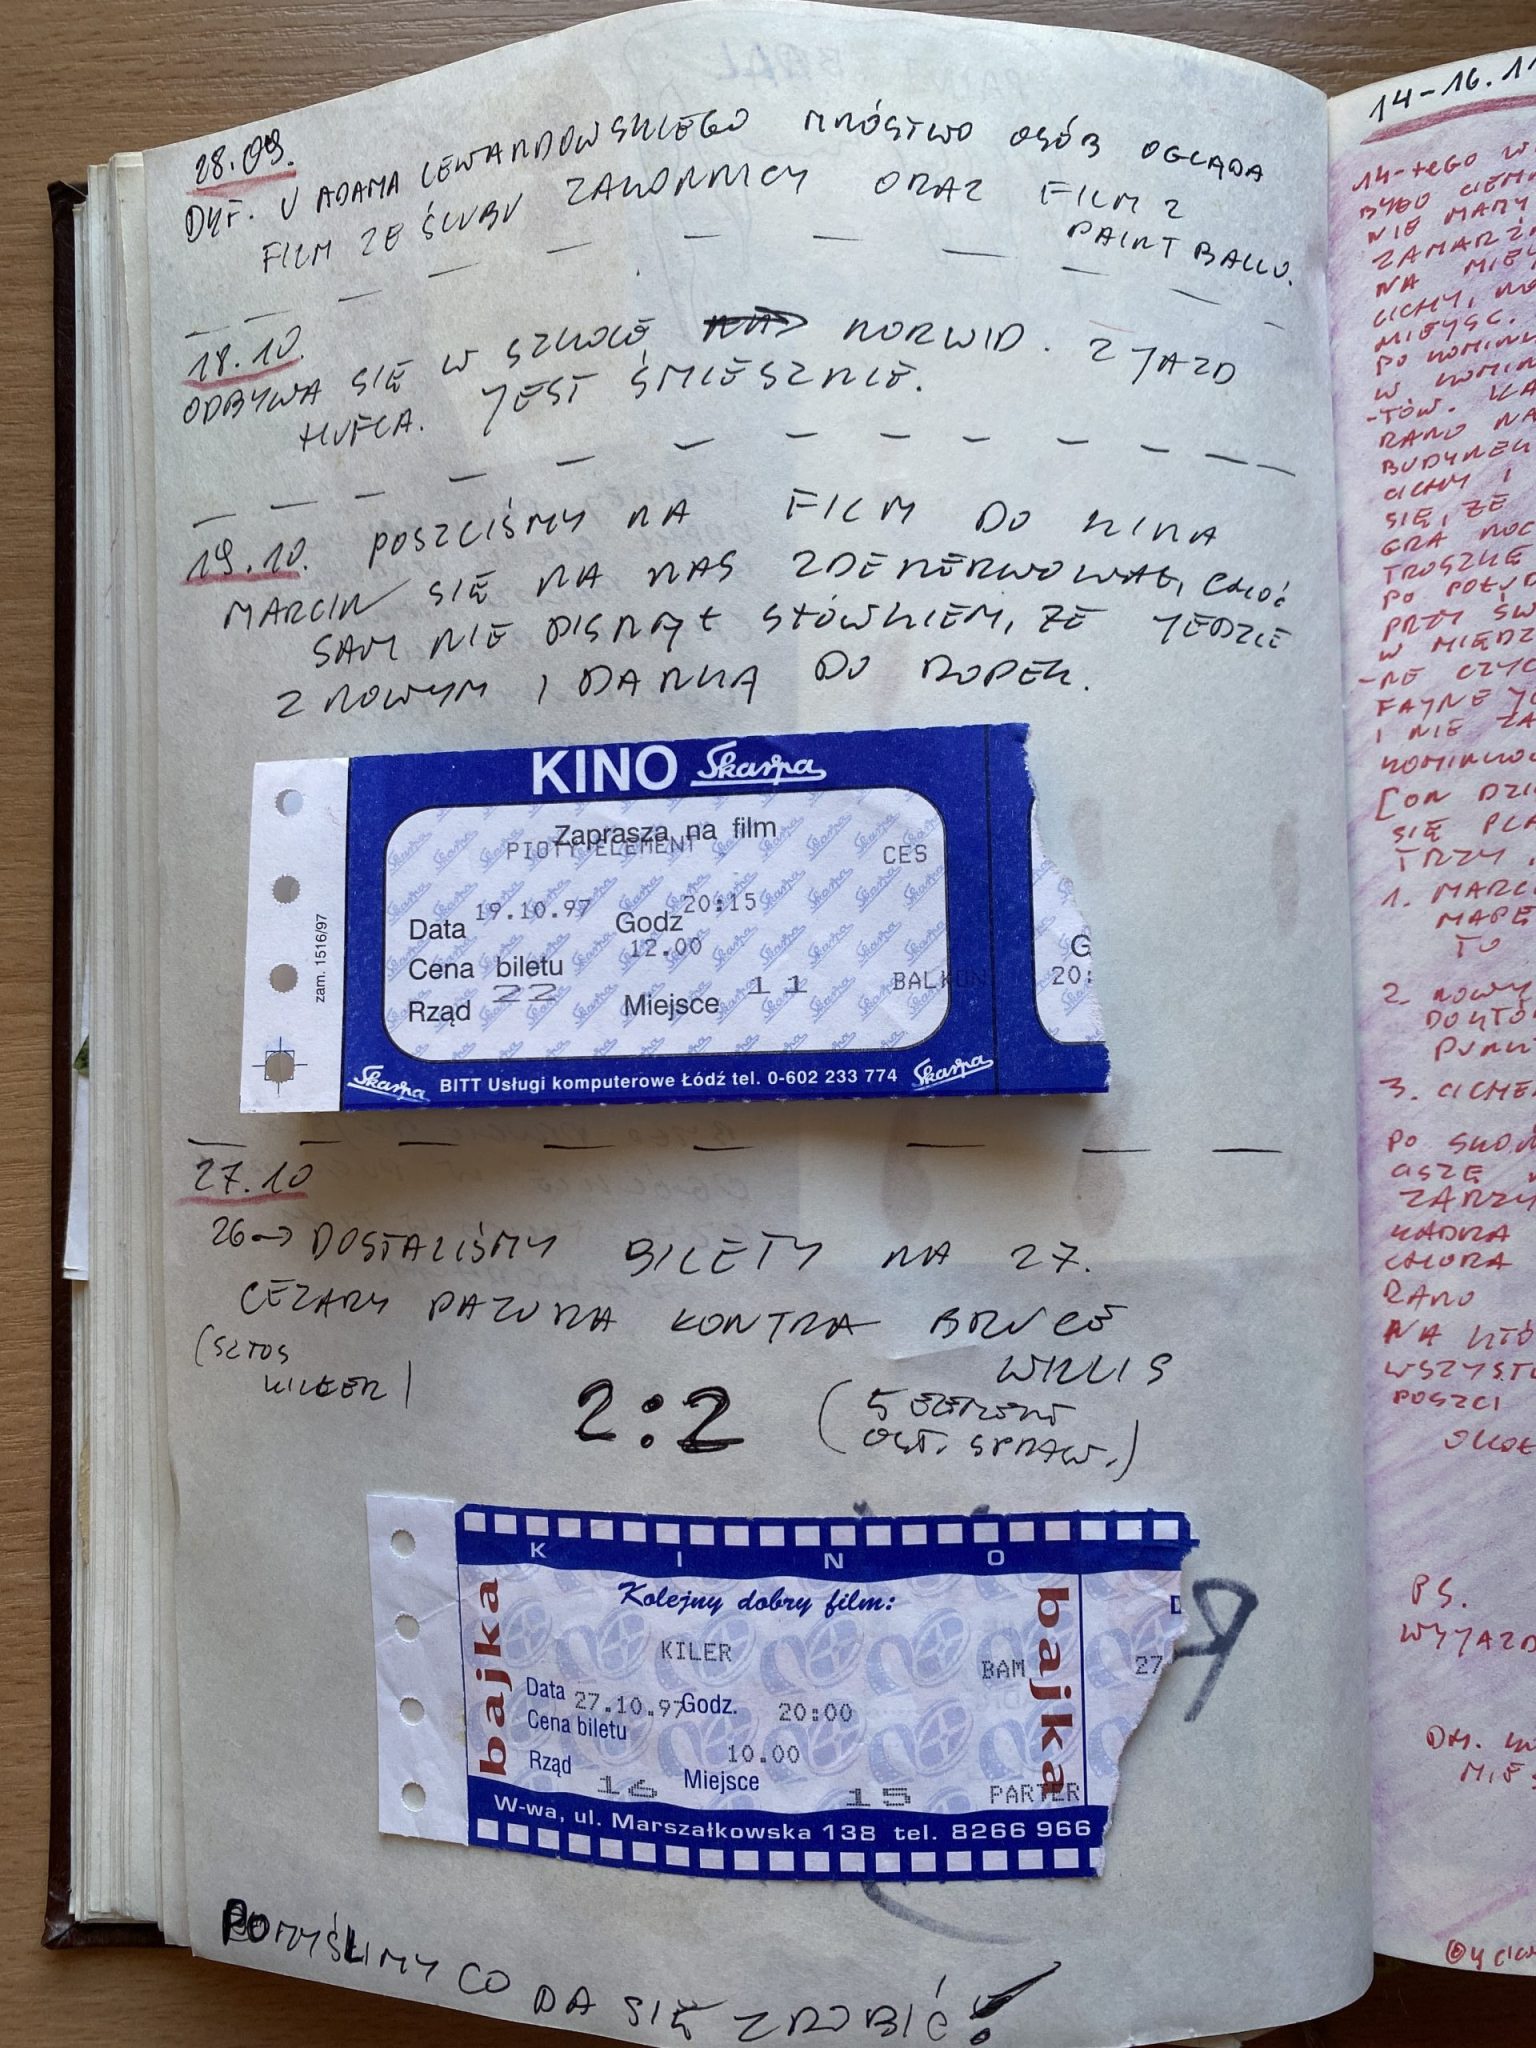 28.09.
DYF. U ADAMA LEWANDOWSKIEGO MNÓSTWO OSÓB OGLĄDA
FILM ZE ŚLUBU ZAKONNICY ORAZ FILM Z
PAINT BALLU.
18.10.
ODBYWA SIĘ W SZKOLE NORWID. ZJAZD
HUFCA. JEST ŚMIESZNIE.
19.10. POSZLIŚMY NA FILM DO KINA
MARCIN SIĘ NA NAS ZDENERWOWAŁ, CHOĆ
SAM NIE PISNĄŁ SŁÓWKIEM, ŻE JEDZIE
Z NOWYM I DANKĄ DO ROPEK.
KINO Skarpa
Zaprasza na film
PIĄTY ELEMENT CES
Data 19.10.97 Godz 20:15
Cena biletu 12.00
Rząd 22 Miejsce 11 BALKON
G
20:
zam. 1516/97
Skarpa BITT Usługi komputerowe Łódź tel. 0-602 233 774 Skarpa
27.10
26→ DOSTALIŚMY BILETY NA 27.
CEZARY PAZURA KONTRA BRUCE
WILLIS
(SZTOS
KILLER)
2:2
(5 ELEMENT
OST. SPRAW.)
KINO
bajka
Kolejny dobry film:
KILER
BAM
bajka
27
Data 27.10.97 Godz. 20:00
Cena biletu 10.00
Rząd 16 Miejsce 15 PARTER
W-wa, ul. Marszałkowska 138 tel. 8266 966
POMYŚLIMY CO DA SIĘ ZROBIĆ!
14-16.11
14-tego W
BYŁO CIEM
NIE MARY
ZAMARZ
NA MIEJ
CICHY, NO
MIEJSC.
PO KOMINK
W KOMIN
-TÓW. KA
RANO NA
BUDYNEK
CICHY I
SIĘ, ŻE
GRA NOC
TROSZKĘ
PO POŁUD
PRZY ŚW
W MIĘDZ
-NE CZYC
FAJNE JE
I NIE ZA
KOMINKO
[ON DZIE
SIĘ PLA
TRZY
1. MARC
MAPE
TO
2. NOWY
DOKTO
PUNKT
3. CICHE
PO SKO
CISZĘ
ZARZ
KADRA
CHORA
RANO
NA KTÓ
WSZYST
POSZLI
OKOŁ
PS.
WYJAZD
MIE